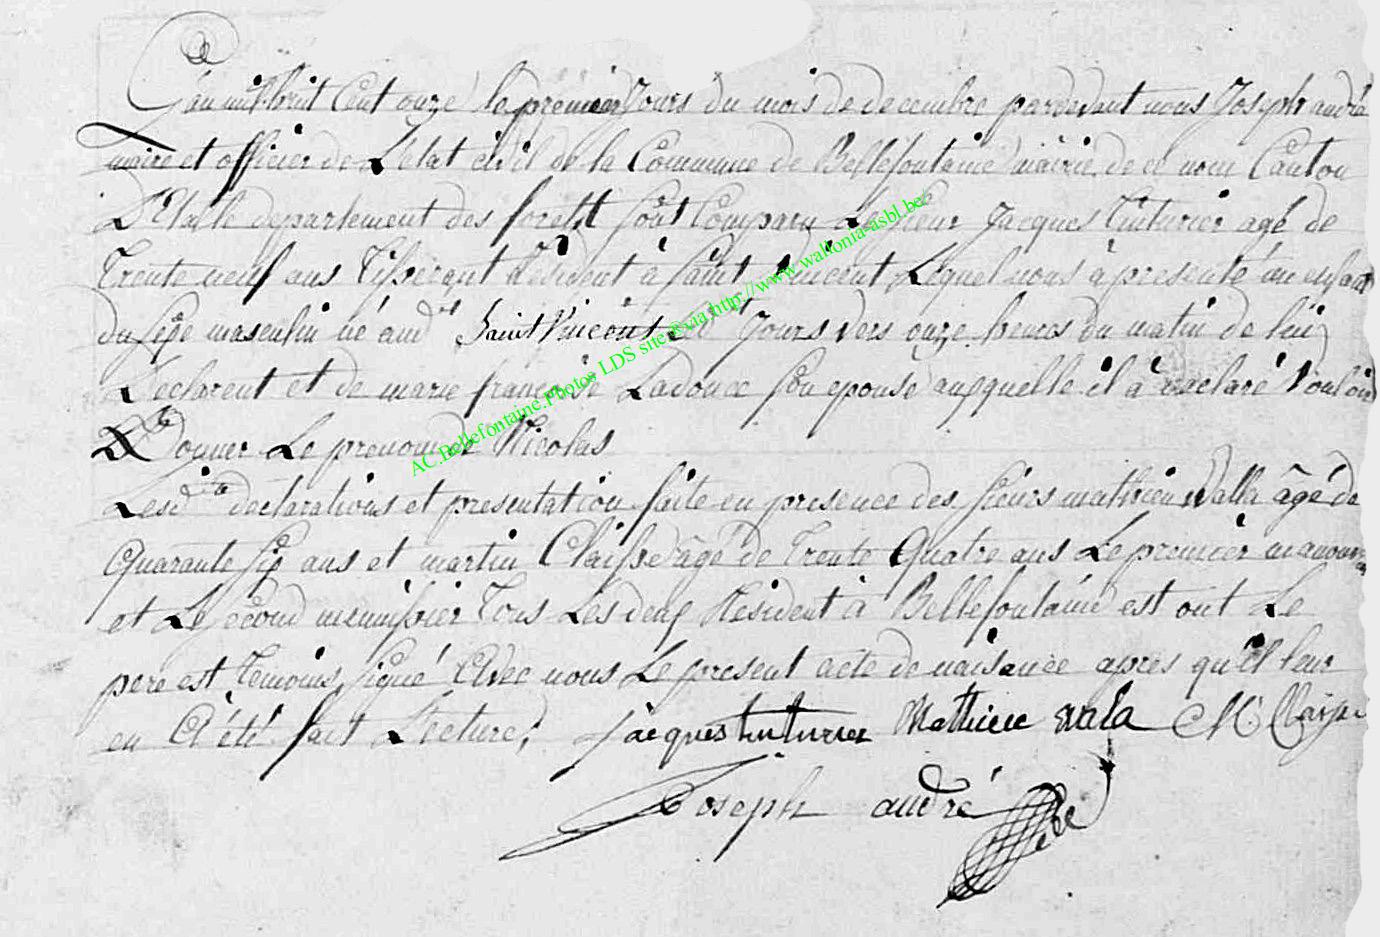 L'an mil huit Cent onze le premier Jours du mois de decembre pardevant nous Joseph andré
maire et officier de L'etat civil de la Commune de Bellefontaine mairie de ce nom Canton
D'Etalle departement des forest sont Comparu Le sieur Jacques Tinturier agé de
Trente neuf ans Tisserant Resident à saint Vincent Lequel nous à presenté un enfant
du sexe masculin né aud^t Saint Vincent ce Jours vers onze heures du matin de lui
Declarent et de marie françoise Ladouce son epouse auxquelle il à declaré Vouloir
Donner Le prenom de Nicolas
Lesd^tes declarations et presentation faite en presence des sieurs mathieu Walla âgé de
Quarante six ans et martin Claisse âgé de Trente Quatre ans Le premier manouvr
et Le second menuisier Tous Les deux Resident à Bellefontaine est ont Le
pere est Temoins signé Avec nous Le present acte de naisance apres qu'il leur
en A été fait Lecture
jacques tinturier Mathieu wala M Claisse
Joseph andré
AC.Bellefontaine.Photos LDS site ®via http://www.wallonia-asbl.be/